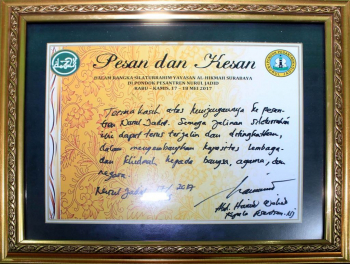 Pesan dan Kesan
DALAM RANGKA SILATURRAHIM YAYASAN AL HIKMAH SURABAYA
DI PONDOK PESANTREN NURUL JADID
RABU - KAMIS, 17 - 18 MEI 2017
Terima kasih atas kunjungannya ke pesan-
tren Nurul Jadid. Semoga jalinan silaturrahim
ini dapat terus terjalin dan ditingkatkan,
dalam mengembangkan kapasitas lembaga
dan khidmah kepada bangsa, agama, dan
negara.
Nurul Jadid, 2017
Abd. Hamid Wahid
Kepala Pesantren NJ